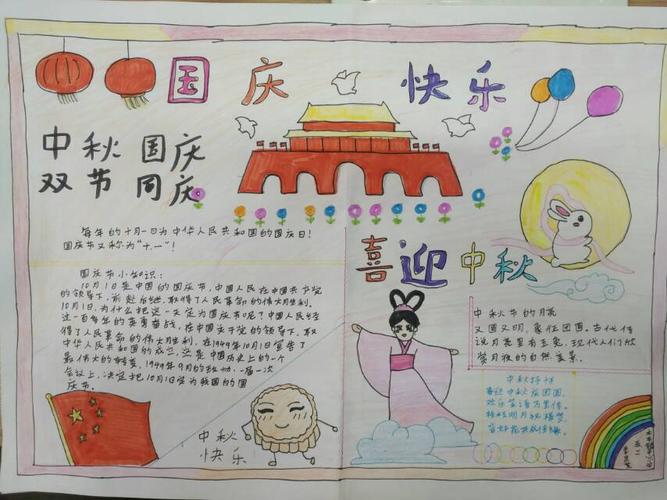 国庆快乐
中秋国庆
双节同庆
每年的十月一日为中华人民共和国的国庆日!
国庆节又称为"十一"!
喜迎中秋
国庆节小知识:
10月1日是中国的国庆节,中国人民在中国共产党
的领导下,前赴后继,取得了人民革命的伟大胜利。
10月1日,为什么把这一天定为国庆节呢?中国人民经
过一百多年的英勇奋战,在中国共产党的领导下,取
得了人民革命的伟大胜利,在1949年10月1日宣告了
中华人民共和国的成立,这是中国历史上的一个
最伟大的转变,1949年9月的政协一届一次
会议上,决定把10月1日定为我国的国
庆节。
中秋节的月亮
又圆又明,象征团圆。古代传
说月亮里有玉兔,现代人们欣
赏月夜的自然美景。
中秋
快乐
中秋
喜迎中秋庆团圆,
欢乐
明月